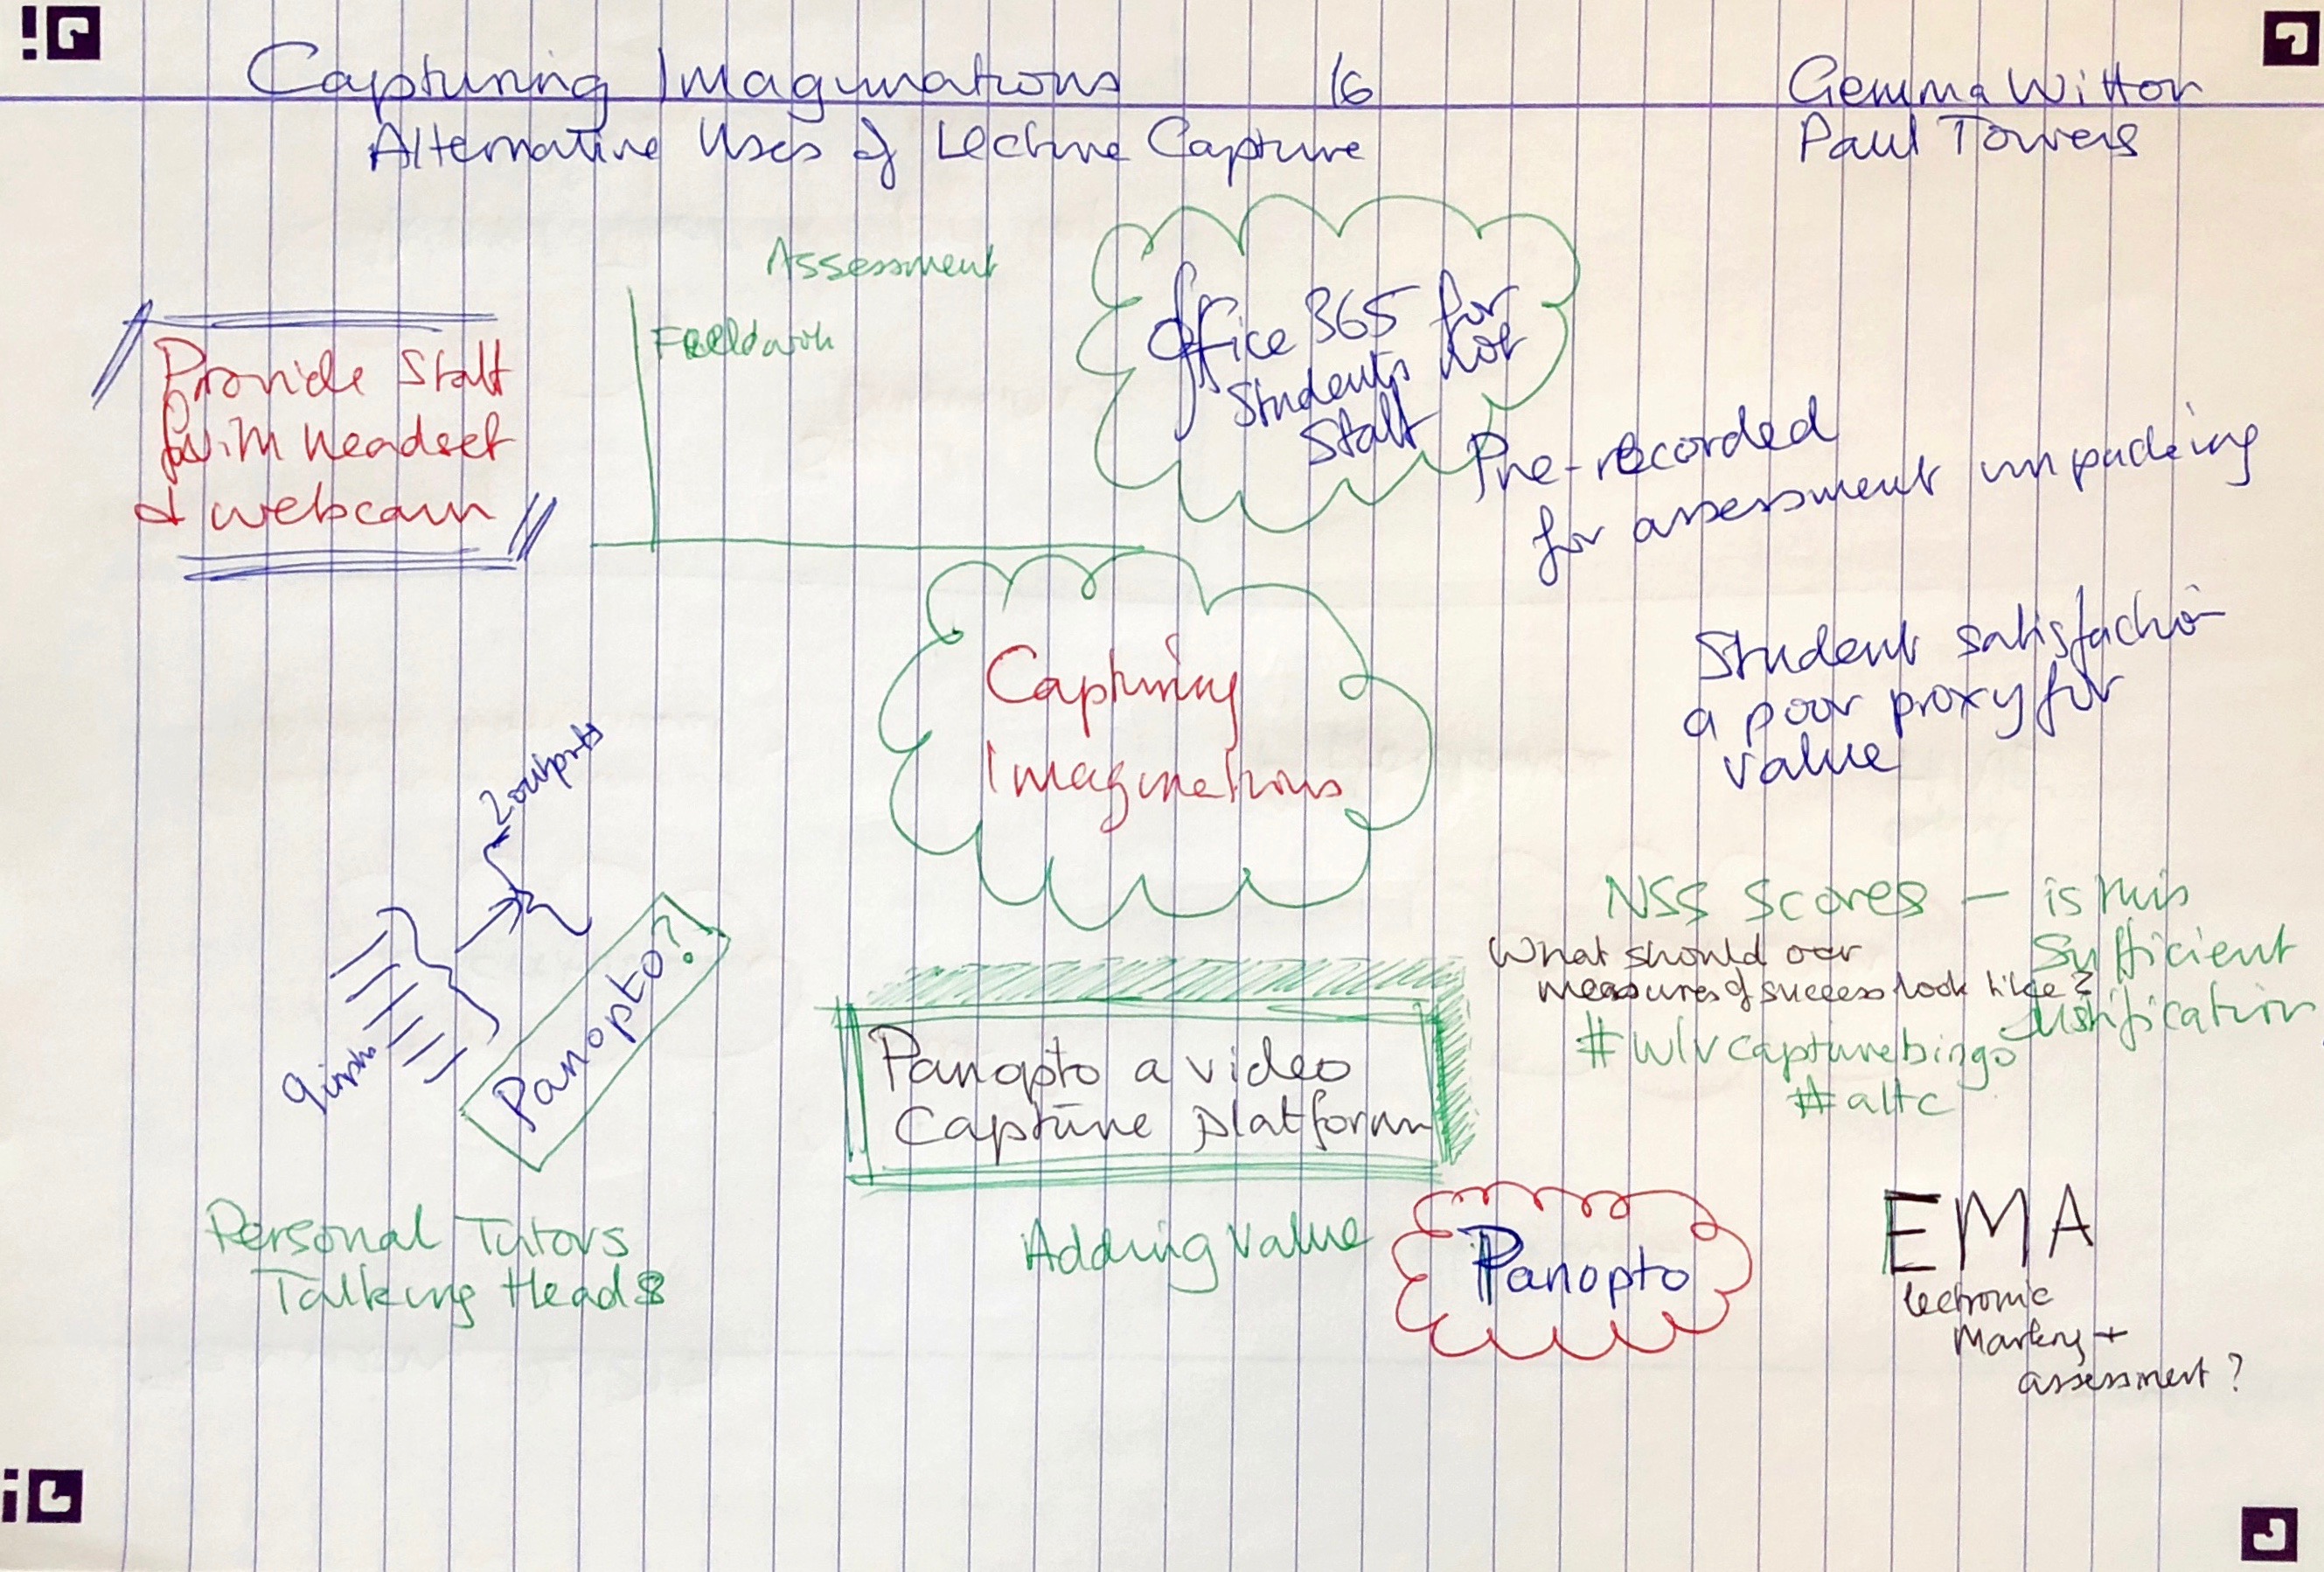 Capturing Imaginations 16 Gemma Witton
Alternative Uses of Lecture Capture Paul Towers
Assessment
Fieldwork
Provide Staff
with headset
& webcam
Office 365 for
Students not
Staff
Pre-recorded
for assessment unpacking
Capturing
Imaginations
Student satisfaction
a poor proxy for
value
2 outputs
Panopto?
NSS Scores - is this
sufficient
justification
What should our
measures of success look like?
#wlvcapturebingo
#altc
Panopto a video
Capture platform
Personal Tutors
Talking Heads
Adding Value
Panopto
EMA
lectronic
Marking +
assessment?